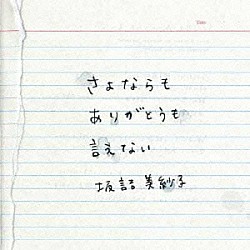 さよならも
ありがとうも
言えない
坂詰 美紗子